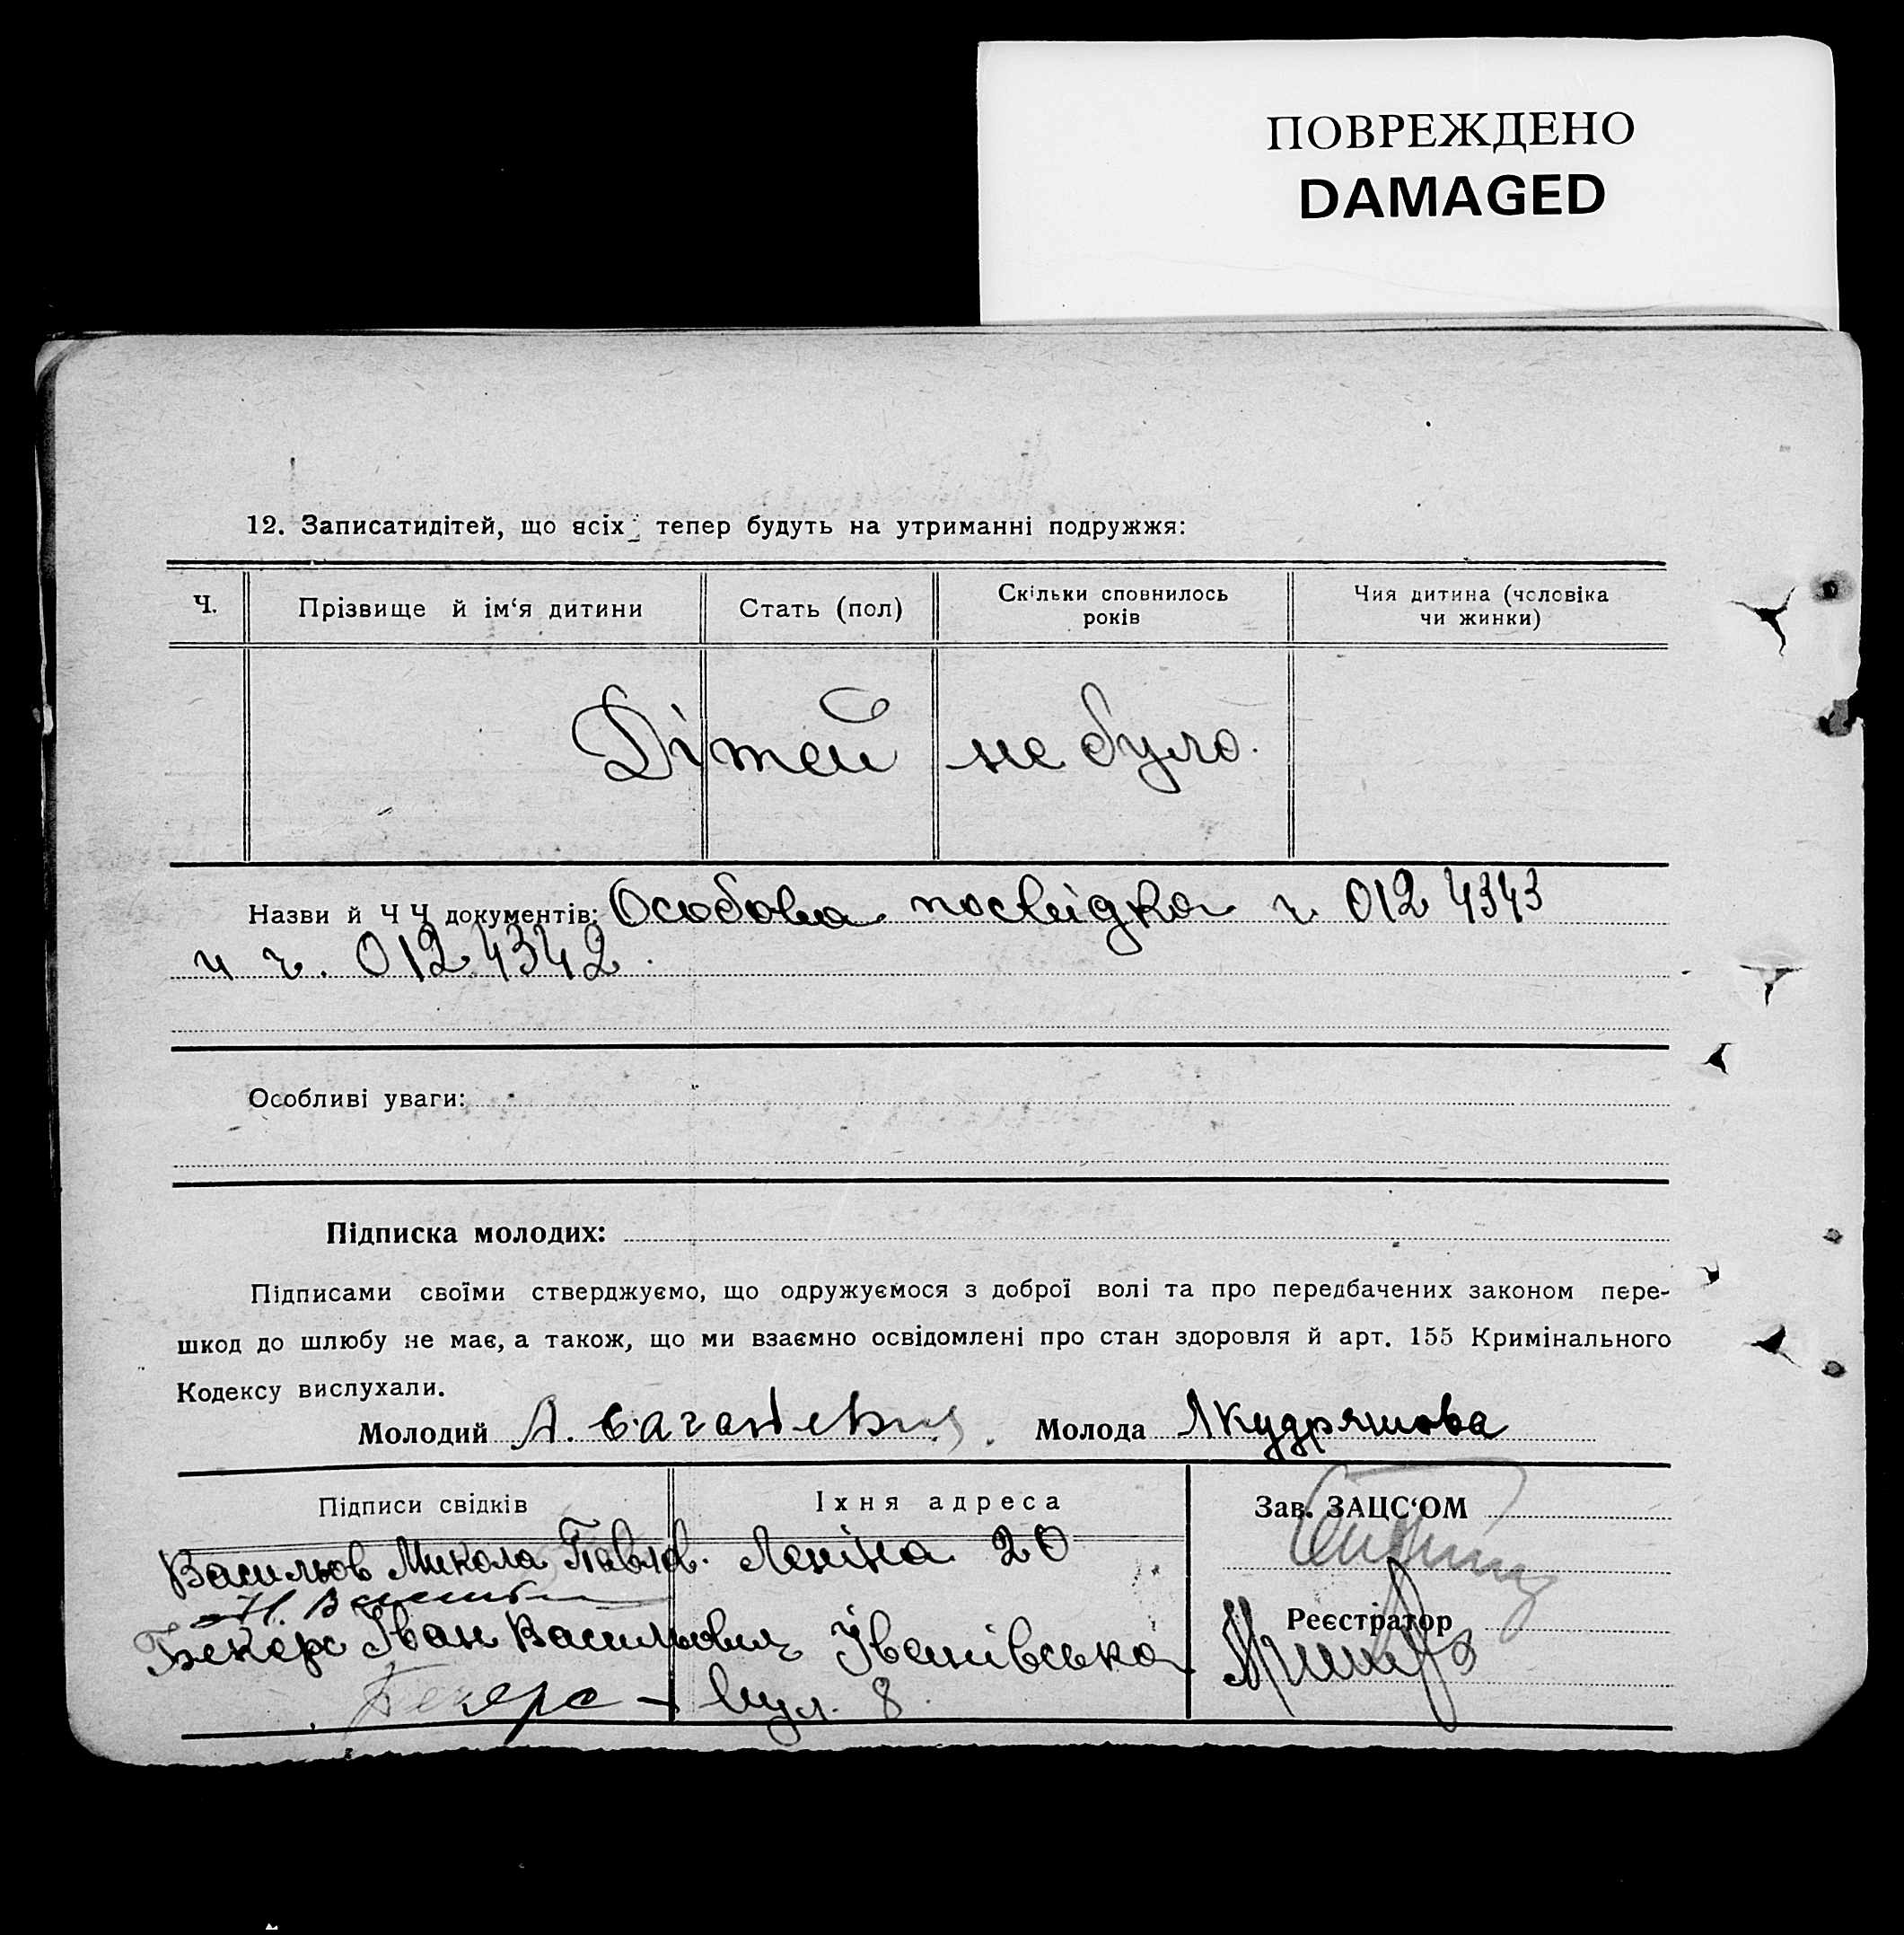 ПОВРЕЖДЕНО
DAMAGED
12. Записатидітей, що всіх тепер будуть на утриманні подружжя:
Ч. Прізвище й ім‘я дитини Стать (пол) Скільки сповнилось років Чия дитина (чоловіка чи жинки)
Дітей не було.
Назви й Ч Ч документів: Особова посвідка ч. 012 4343
и ч. 012 4342.
Особливі уваги:
Підписка молодих:
Підписами своїми стверджуємо, що одружуємося з доброї волі та про передбачених законом пере-
шкод до шлюбу не має, а також, що ми взаємно освідомлені про стан здоровля й арт. 155 Кримінального
Кодексу вислухали.
Молодий А. Молода ЛКудряшова
Підписи свідків Їхня адреса Зав. ЗАЦС‘ОМ
Васильов Микола Павлов. Леніна 20
Реєстратор
Бекерс Іван Васильович Іванівська
Бекерс вул. 8